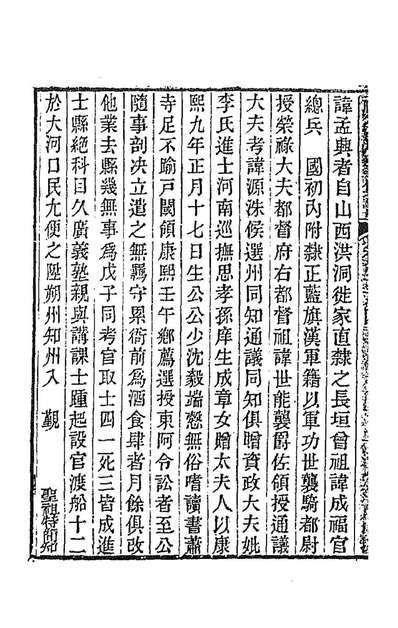 諱孟興者自山西洪洞徙家直隸之長垣曾祖諱成福官
總兵　國初內附隸正藍旗漢軍籍以軍功世襲騎都尉
授榮祿大夫都督府右都督祖諱世能襲爵佐領授通議
大夫考諱源洙候選州同知通議同知俱贈資政大夫妣
李氏進士河南巡撫思孝孫庠生成章女贈太夫人以康
熙九年正月十七日生公公少沈毅端慤無俗嗜讀書蕭
寺足不踰戸閾領康熙壬午鄉薦選授東阿令訟者至公
隨事剖决立遣之無羈守累衙前爲酒食肆者月餘俱改
他業去縣幾無事爲戊子同考官取士四一死三皆成進
士縣絕科目久廣義塾親與講課士踵起設官渡船十二
於大河口民尢便之陞朔州知州入　覲　聖祖特簡